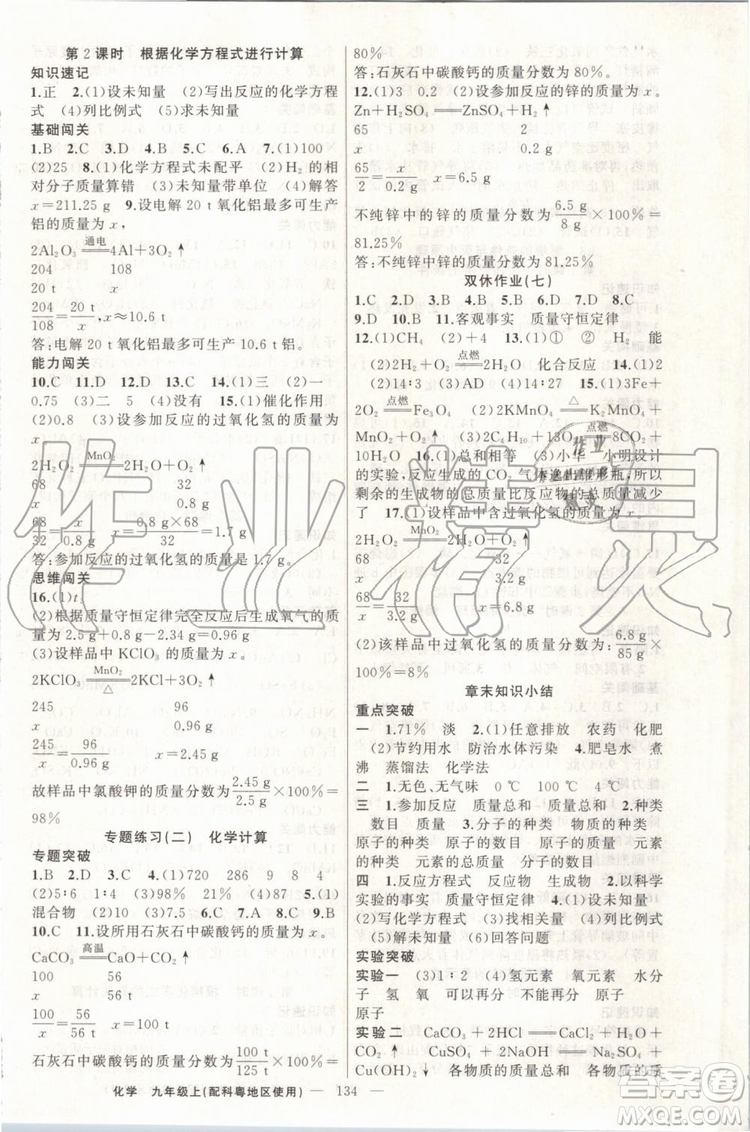 第2课时 根据化学方程式进行计算
知识速记
1.正 2.(1)设未知量 (2)写出反应的化学方程
式 (4)列比例式 (5)求未知量
基础闯关
1.B 2.B 3.A 4.C 5.C 6.A 7.(1)100
(2)25 8.(1)化学方程式未配平 (2)HCl的相
对分子质量算错 (3)未知量带单位 (4)解答
x=211.25 g 9.设电解20 t氧化铝最多可生产
铝的质量为x,
2Al₂O₃ 通电 4Al+3O₂↑
204 108
20 t x
204/108=20 t/x x≈10.6 t
答:电解20 t氧化铝最多可生产10.6 t铝。
能力闯关
10.C 11.D 12.D 13.A 14.(1)三 (2)一
0.75 (3)二 5 (4)没有 15.(1)催化作用
(2)0.8 (3)设参加反应的过氧化氢的质量为
x
2H₂O₂ MnO₂ 2H₂O+O₂↑
68 32
x 0.8 g
68/32=x/0.8 g x=0.8 g×68/32=1.7 g
答:参加反应的过氧化氢的质量是1.7 g。
思维闯关
16.(1)t
(2)根据质量守恒定律完全反应后生成氧气的质量为
2.5 g+0.8 g-2.34 g=0.96 g
(3)设样品中KClO₃的质量为x。
2KClO₃ MnO₂ △ 2KCl+3O₂↑
245 96
x 0.96 g
245/x=96/0.96 g x=2.45 g
故样品中氯酸钾的质量分数为2.45 g/2.5 g×100%=
98%
专题练习(二) 化学计算
专题突破
1.B 2.D 3.D 4.(1)720 286 9 8 4
(2)5:6 1:4 (3)98% 21% 5.(1)
混合物 (2)0.4 (3)8 6.C 7.A 8.C 9.B
10.C 11.设所用石灰石中碳酸钙的质量为x。
CaCO₃ 高温 CaO+CO₂↑
100 56
x 56 t
100/x=56/56 t x=100 t
石灰石中碳酸钙的质量分数为100 t/125 t×100%=
80%
答:石灰石中碳酸钙的质量分数为80%。
12.(1)3 0.2 (2)设参加反应的锌的质量为x。
Zn+H₂SO₄ ═ ZnSO₄+H₂↑
65 2
x 0.2 g
65/2=x/0.2 g x=6.5 g
不纯锌中的锌的质量分数为6.5 g/8 g×100%=
81.25%
答:不纯锌中的锌的质量分数为81.25%
双休作业(七)
1.C 2.D 3.B 4.C 5.A 6.C 7.C 8.D
9.D 10.B 11.客观事实 质量守恒定律
12.(1)4 (2)C 13.(1)① ② H 能
(2)2H₂+O₂ 点燃 2H₂O 化合反应 14.(1)2
(2)14:3 (3)D (4)14:27 15.(1)3Fe+
2O₂ 点燃 Fe₃O₄ (2)2KMnO₄ △ K₂MnO₄+
MnO₂+O₂↑ (3)2C₄H₁₀+13O₂ 点燃 8CO₂+
10H₂O 16.(1)总和相等 (2)小华 小明设计
的实验,反应生成的CO₂气体逸出锥形瓶,所以
剩余的生成物的总质量比反应物的总质量减少
了 17.(1)设样品中含过氧化氢的质量为x。
2H₂O₂ MnO₂ 2H₂O+O₂↑
68 32
x 3.2 g
68/x=32/3.2 g x=6.8 g
(2)该样品中过氧化氢的质量分数=6.8 g/85 g×
100%=8%
章末知识小结
重点突破
一 1.71% 淡 2.(1)任意排放 农药 化肥
(2)节约用水 防治水体污染 4.肥皂水 煮
沸 蒸馏法 化学法
二 1.无色、无气味 0℃ 100℃ 4℃
三 1.参加反应 质量总和 质量总和 2.种类
数目 质量 3.分子的种类 物质的种类
原子的种类 原子的数目 原子的质量 元素
的种类 元素的总质量 分子的数目
四 1.反应方程式 反应物 生成物 2.以科学
实验的事实 质量守恒定律 3.(1)设未知量
(2)写化学方程式 (3)找相关量 (4)列比例式
(5)解未知量 (6)回答问题
实验突破
实验一 (3)1:2 (4)氢元素 氧元素 水分
子 氢 氧 可以再分 不能再分 原子
原子
实验二 CaCO₃+2HCl ═ CaCl₂+H₂O+
CO₂↑ CuSO₄+2NaOH ═ Na₂SO₄+
Cu(OH)₂↓ 质量守恒定律 等于
化学 九年级上(配科粤地区使用) — 134 —
作业精灵
MXQE.COM